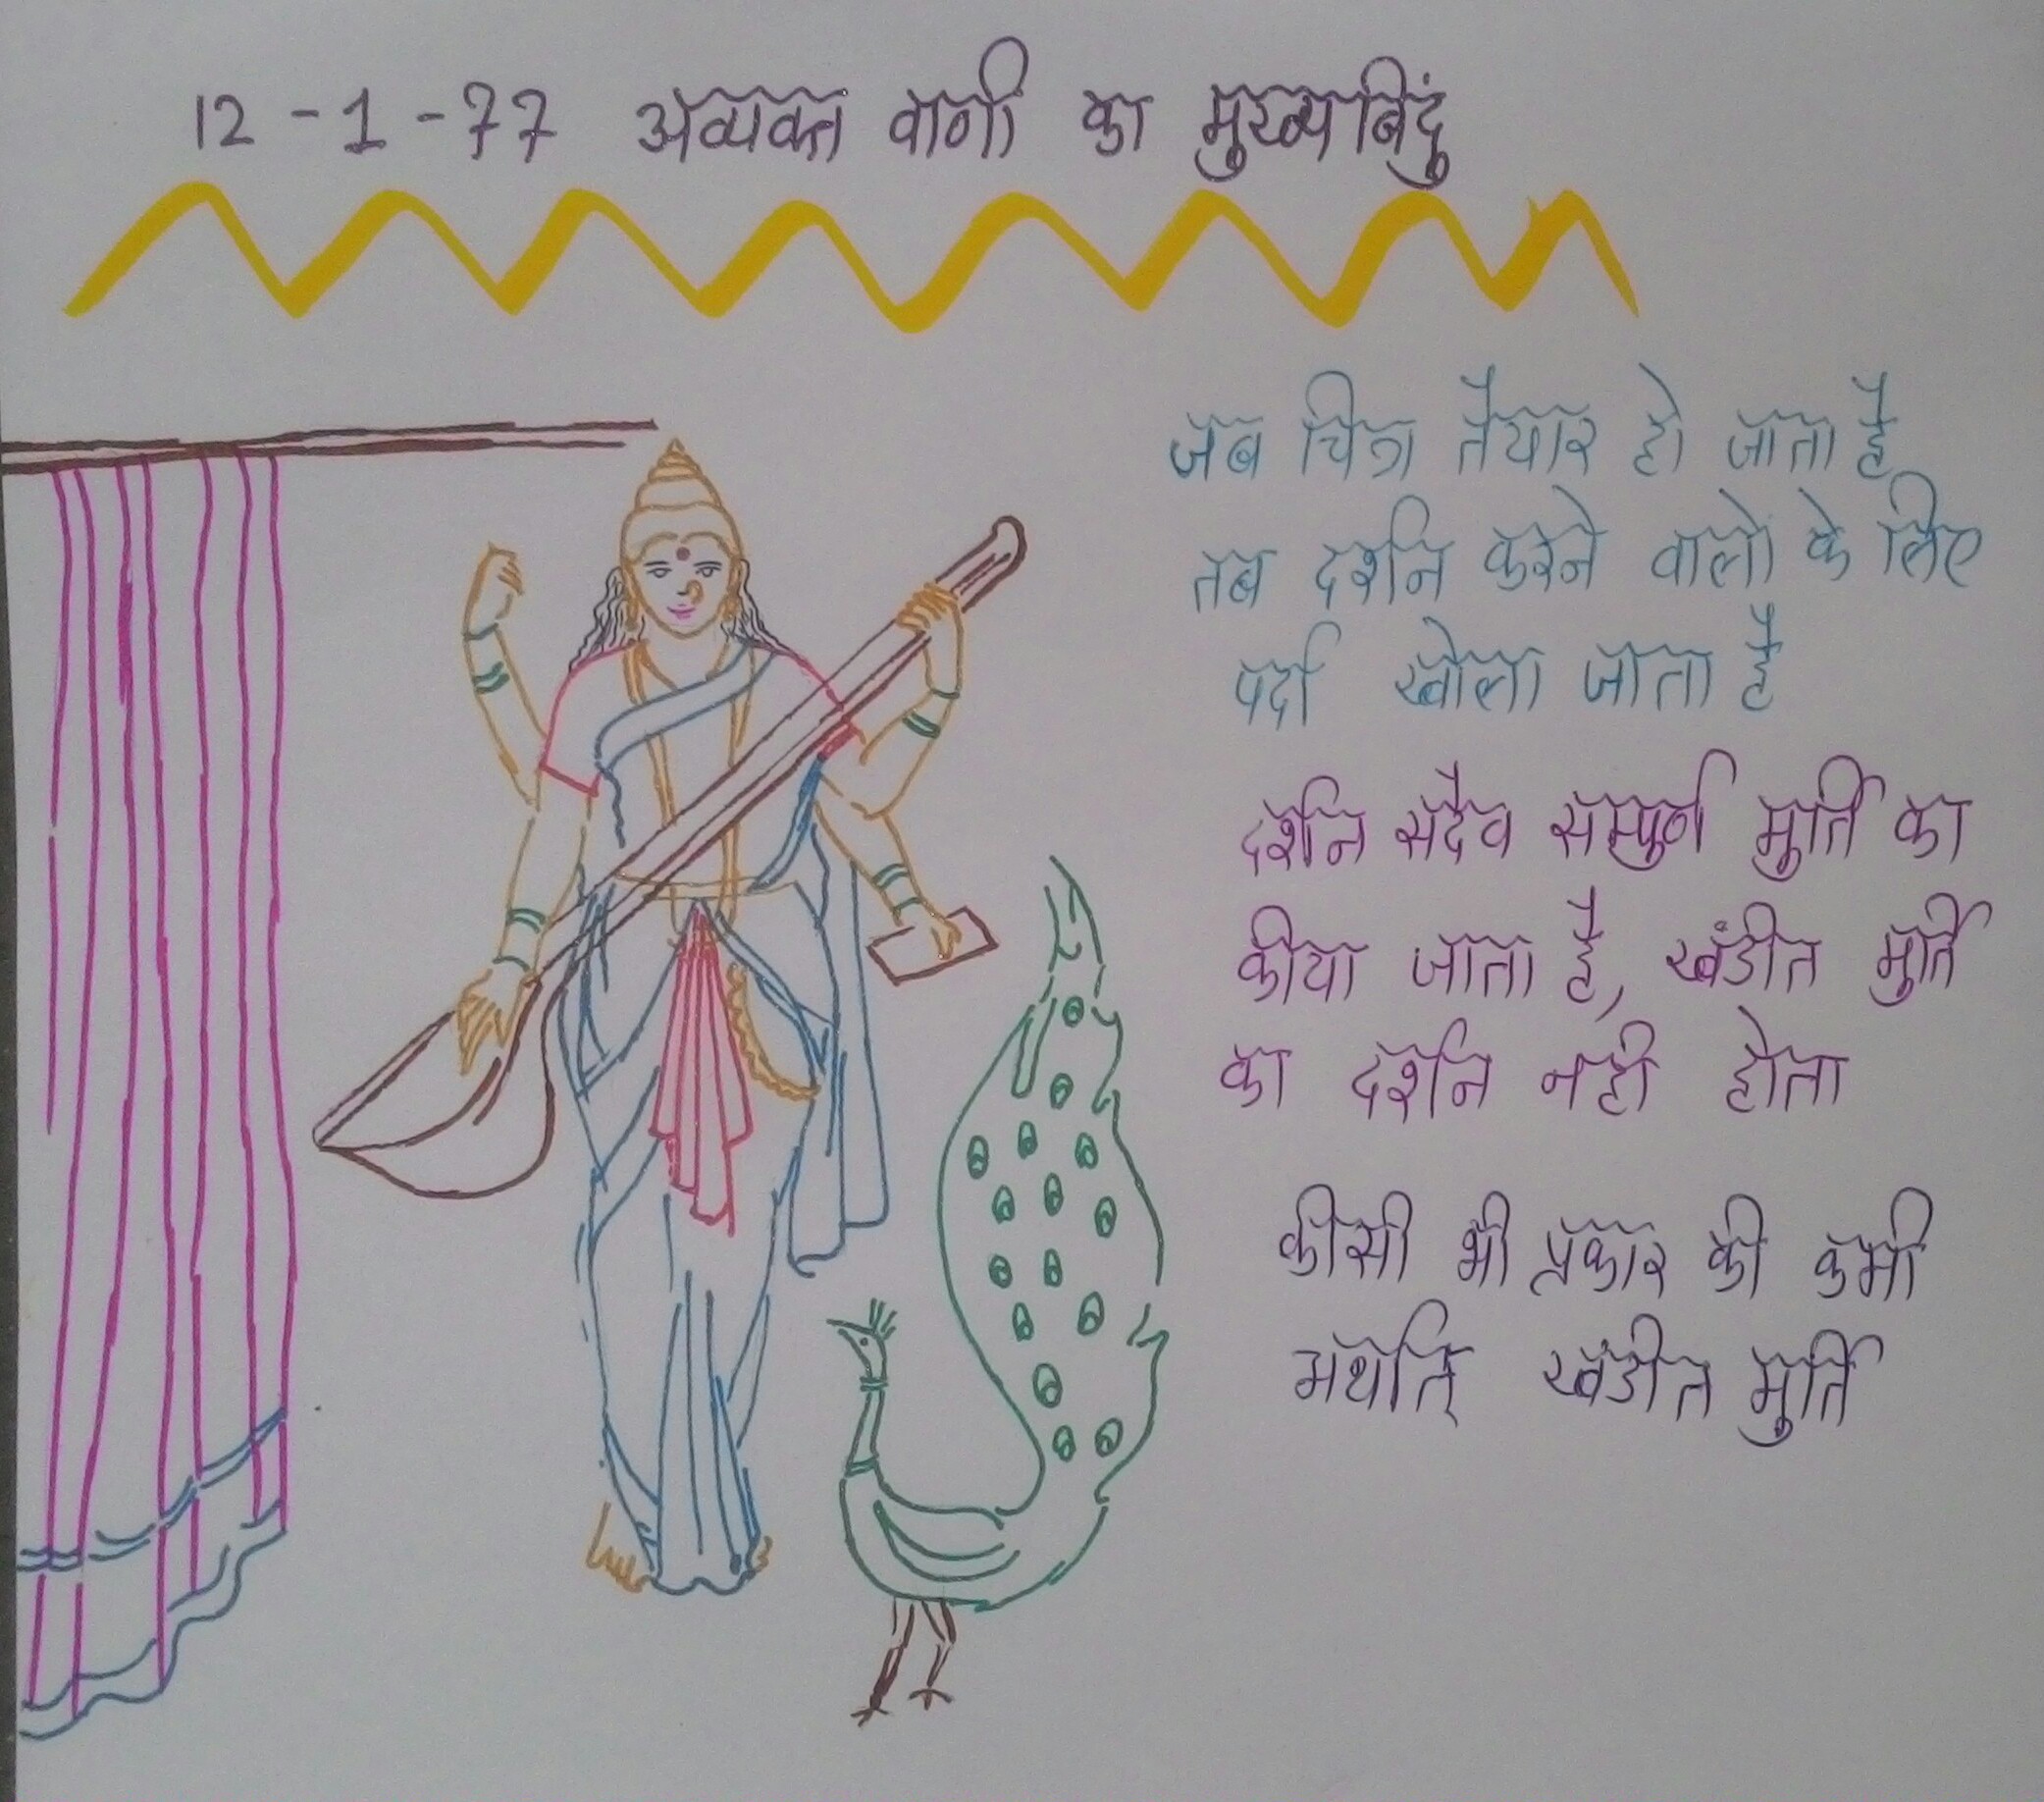 12-1-77 अव्यक्त वाणी का मुख्यबिंदुं
जब चित्र तैयार हो जाता है
तब दर्शन करने वालो के लिए
पर्दा खोला जाता है
दर्शन सदैव सम्पुर्ण मुर्ति का
कीया जाता है, खंडीत मुर्ति
का दर्शन नही होता
कीसी भी प्रकार की कमी
अर्थात् खंडीत मुर्ति